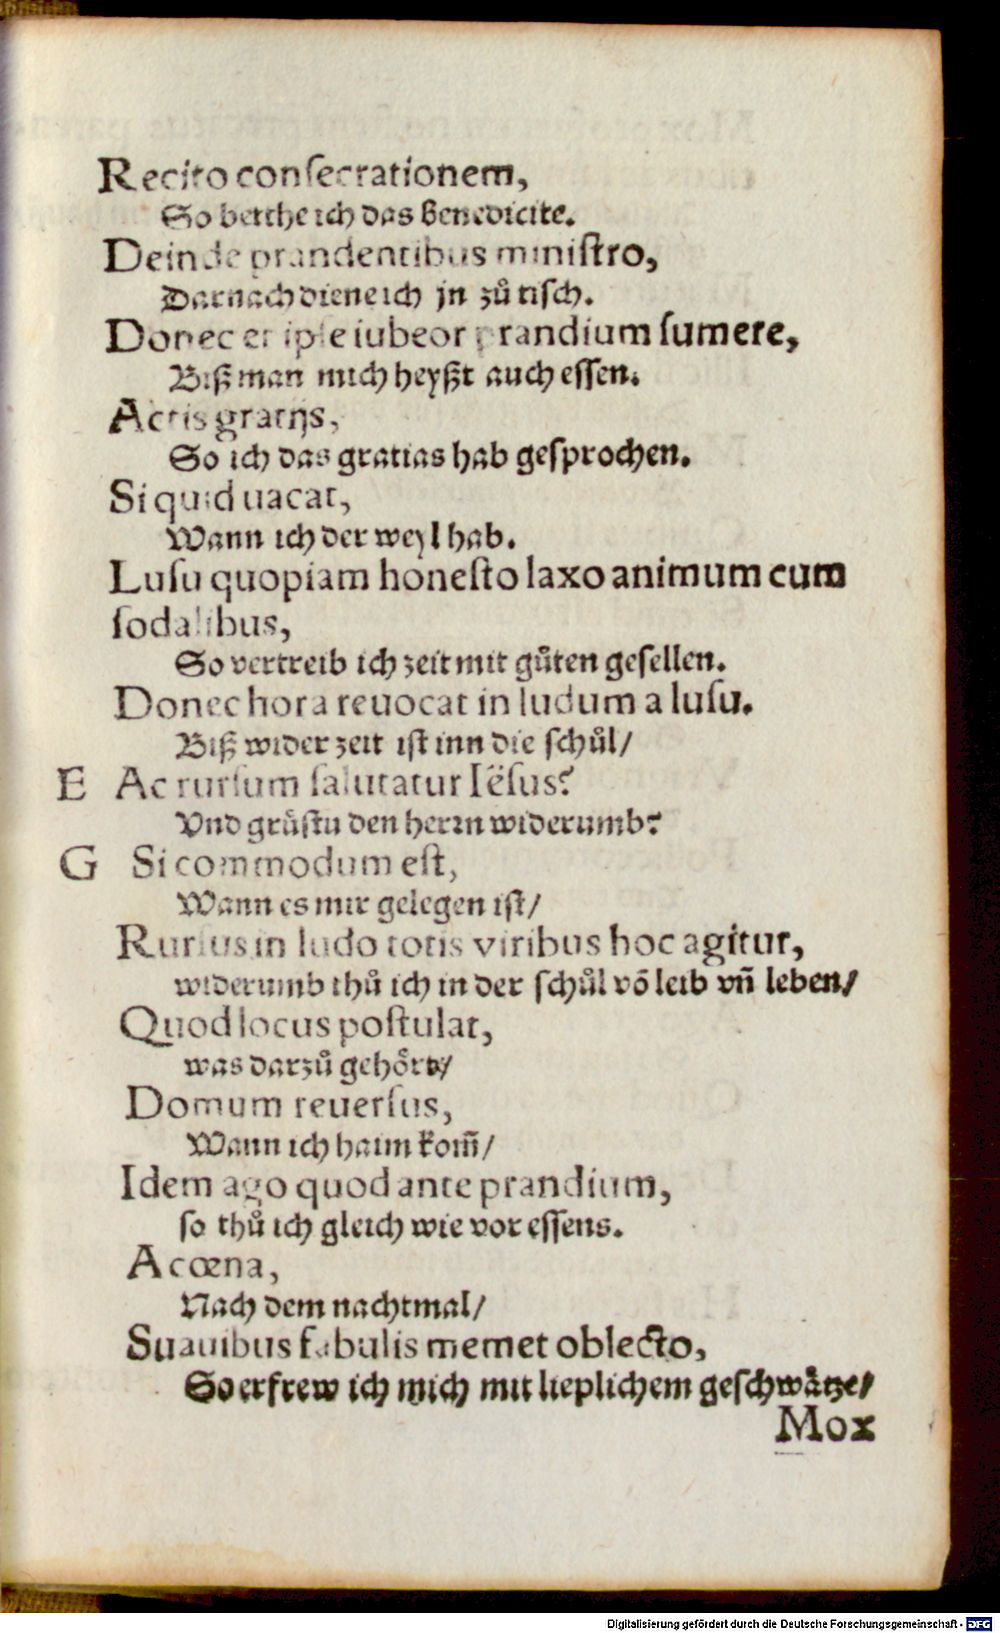 Recito consecrationem,
So betthe ich das Benedicite.
Deinde prandentibus ministro,
Darnach diene ich jn zů tisch.
Donec et ipse iubeor prandium sumere,
Biß man mich heyßt auch essen.
Actis gratijs,
So ich das gratias hab gesprochen.
Si quid uacat,
Wann ich der weyl hab.
Lusu quopiam honesto laxo animum cum
sodalibus,
So vertreib ich zeit mit gůten gesellen.
Donec hora reuocat in ludum a lusu.
Biß wider zeit ist inn die schůl/
E Ac rursum salutatur Iësus?
Vnd grůstu den herrn widerumb?
G Si commodum est,
Wann es mir gelegen ist/
Rursus in ludo totis viribus hoc agitur,
widerumb thů ich in der schůl võ leib vñ leben/
Quod locus postulat,
was darzů gehôrt/
Domum reuersus,
Wann ich haim kom̃/
Idem ago quod ante prandium,
so thů ich gleich wie vor essens.
A cœna,
Nach dem nachtmal/
Suauibus fabulis memet oblecto,
So erfrew ich mich mit lieplichem geschwåtze/
Mox
Digitalisierung gefördert durch die Deutsche Forschungsgemeinschaft - DFG